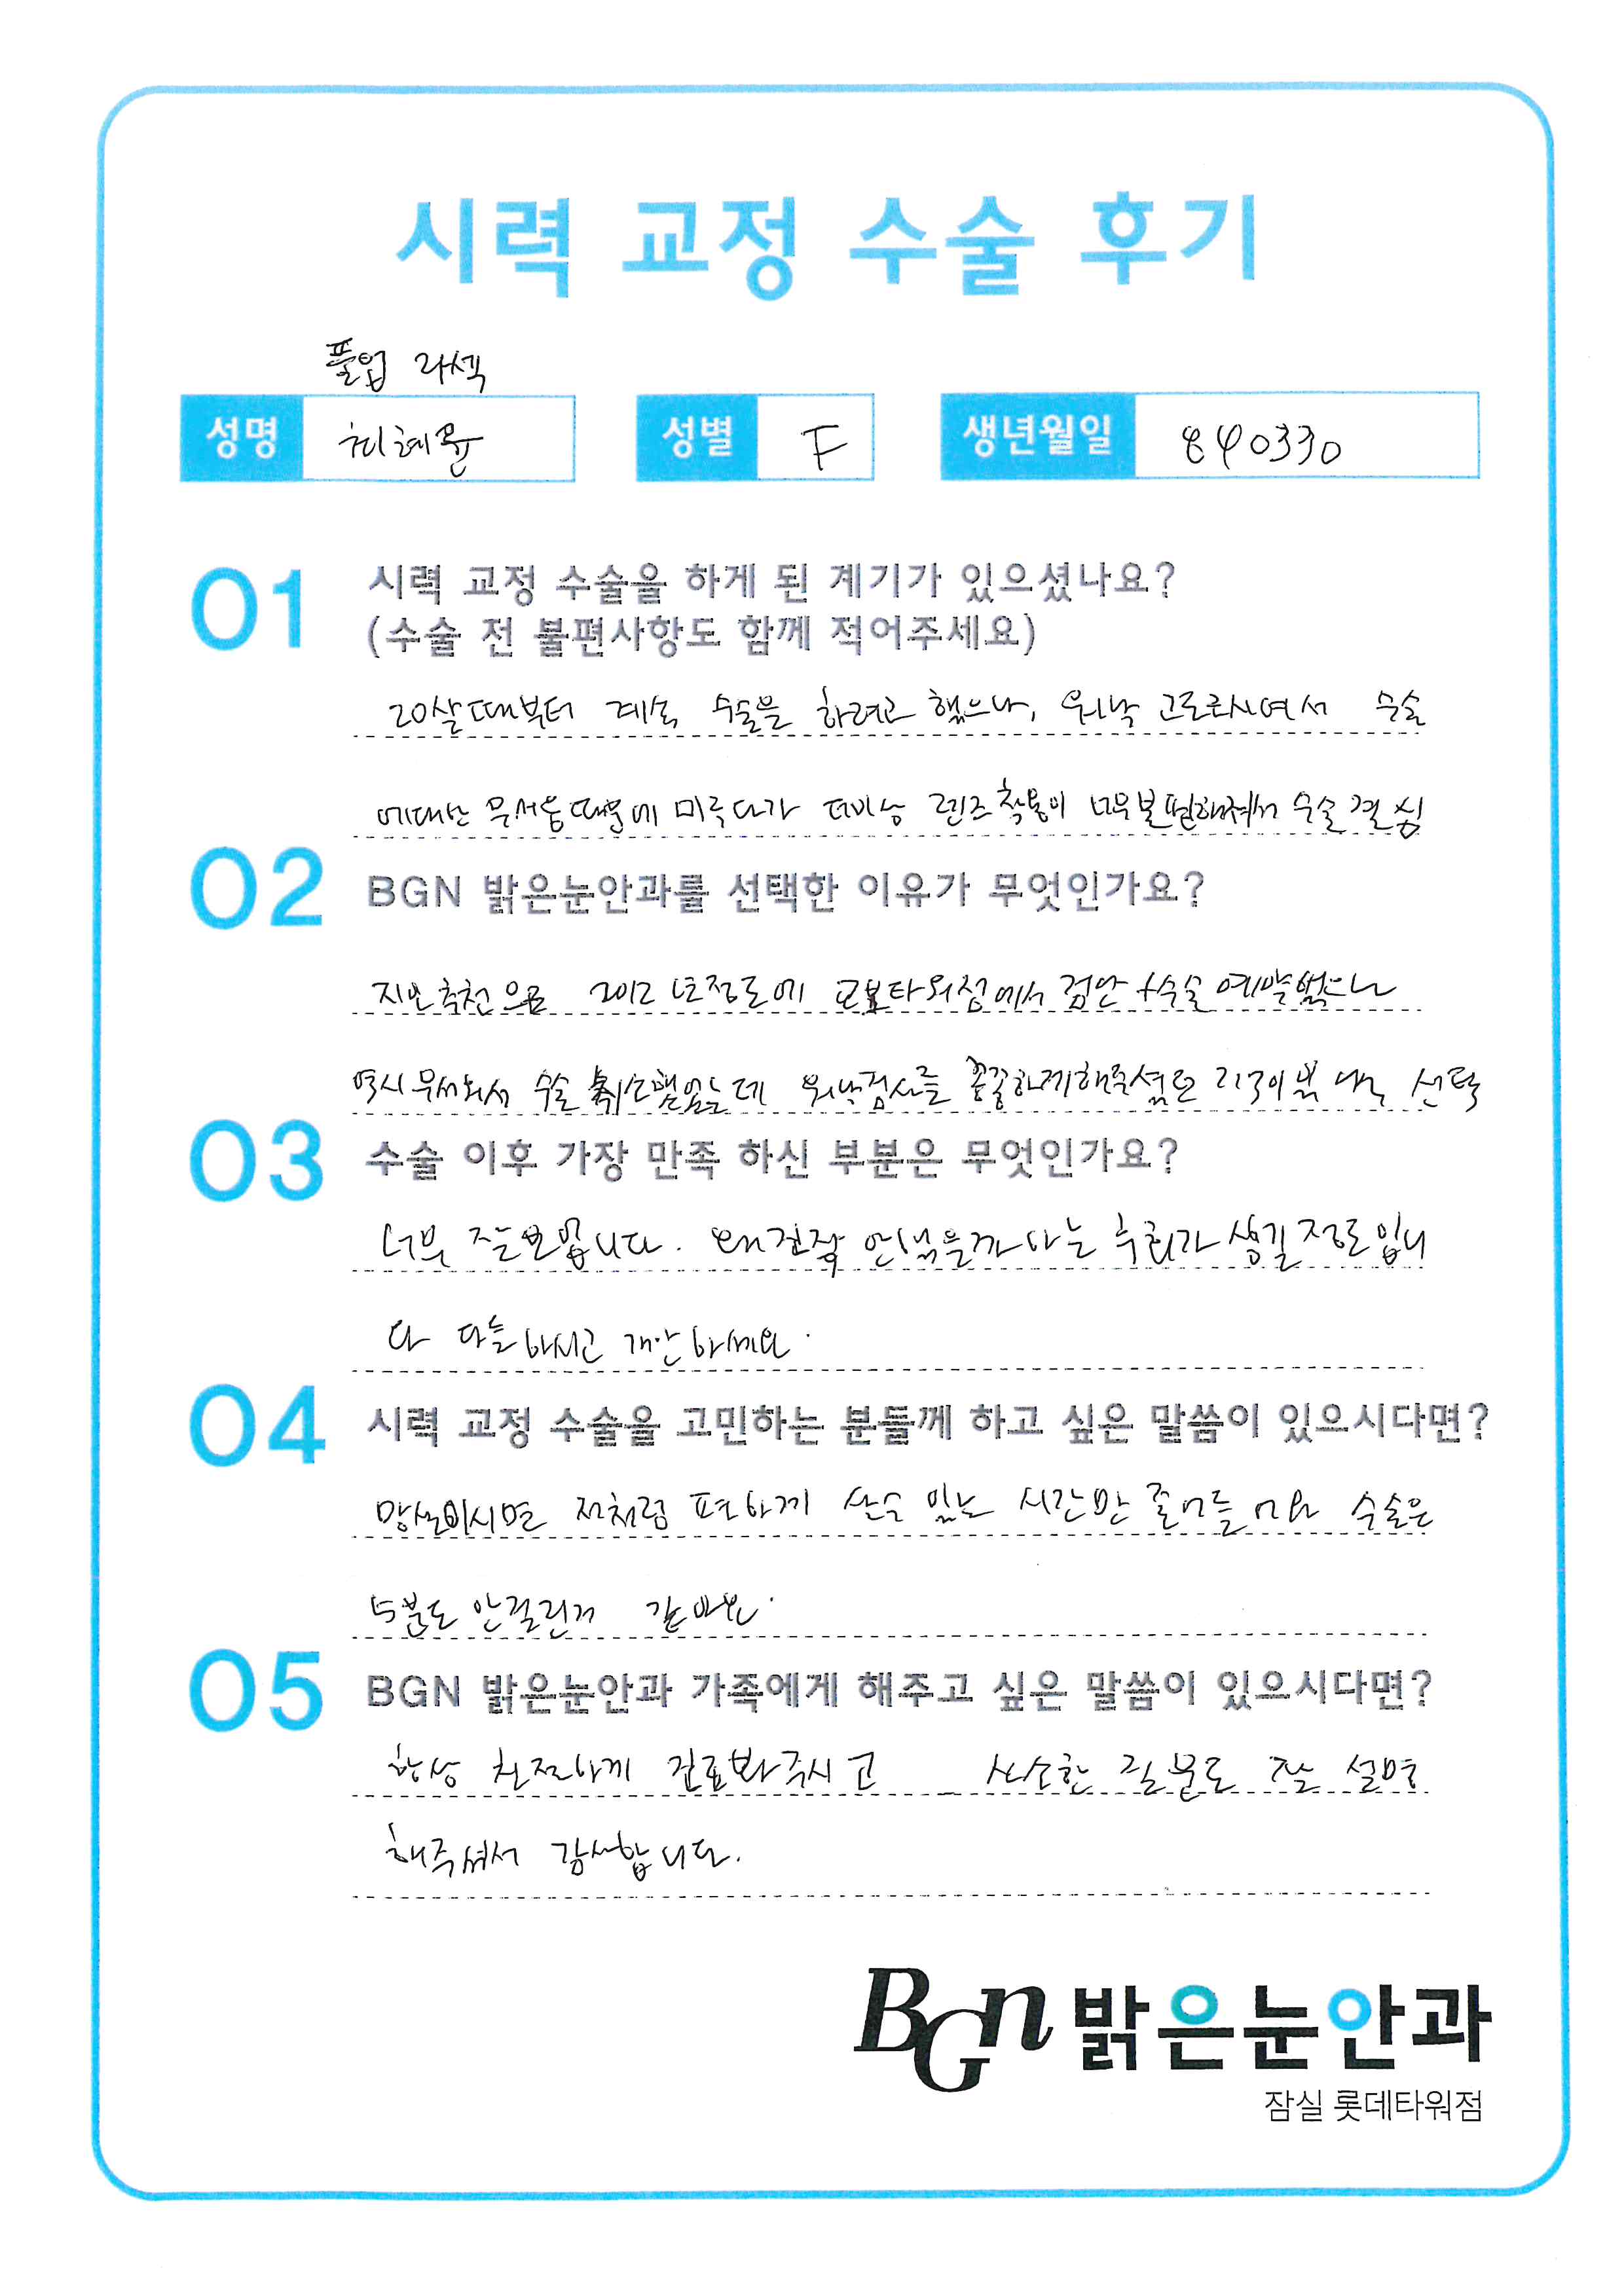 시력 교정 수술 후기
풀업 라섹
성명 최혜윤 성별 F 생년월일 840330
01 시력 교정 수술을 하게 된 계기가 있으셨나요?
(수술 전 불편사항도 함께 적어주세요)
20살때부터 계속 수술을 하려고 했으나, 워낙 고도근시여서 수술
에대한 무서움때문에 미루다가 더이상 렌즈착용이 너무불편해져서 수술결심
02 BGN 밝은눈안과를 선택한 이유가 무엇인가요?
지인추천으로 2012년정도에 교보타워점에서 검안+수술 예약했으나
역시 무서워서 수술 취소했었는데 워낙검사를 꼼꼼하게해주셨던 선택
03 수술 이후 가장 만족 하신 부분은 무엇인가요?
너무 잘보입니다. 왜진작 안했을까라는 후회가 생길정도입니
다 다들하시고 개안하세요.
04 시력 교정 수술을 고민하는 분들께 하고 싶은 말씀이 있으시다면?
망설이시면 저처럼 편하게 살수 있는 시간만 줄어들어요 수술은
5분도 안걸린거 같아요.
05 BGN 밝은눈안과 가족에게 해주고 싶은 말씀이 있으시다면?
항상 친절하게 진료봐주시고 사소한 질문도 잘 설명
해주셔서 감사합니다.
BGN 밝은눈안과
잠실 롯데타워점